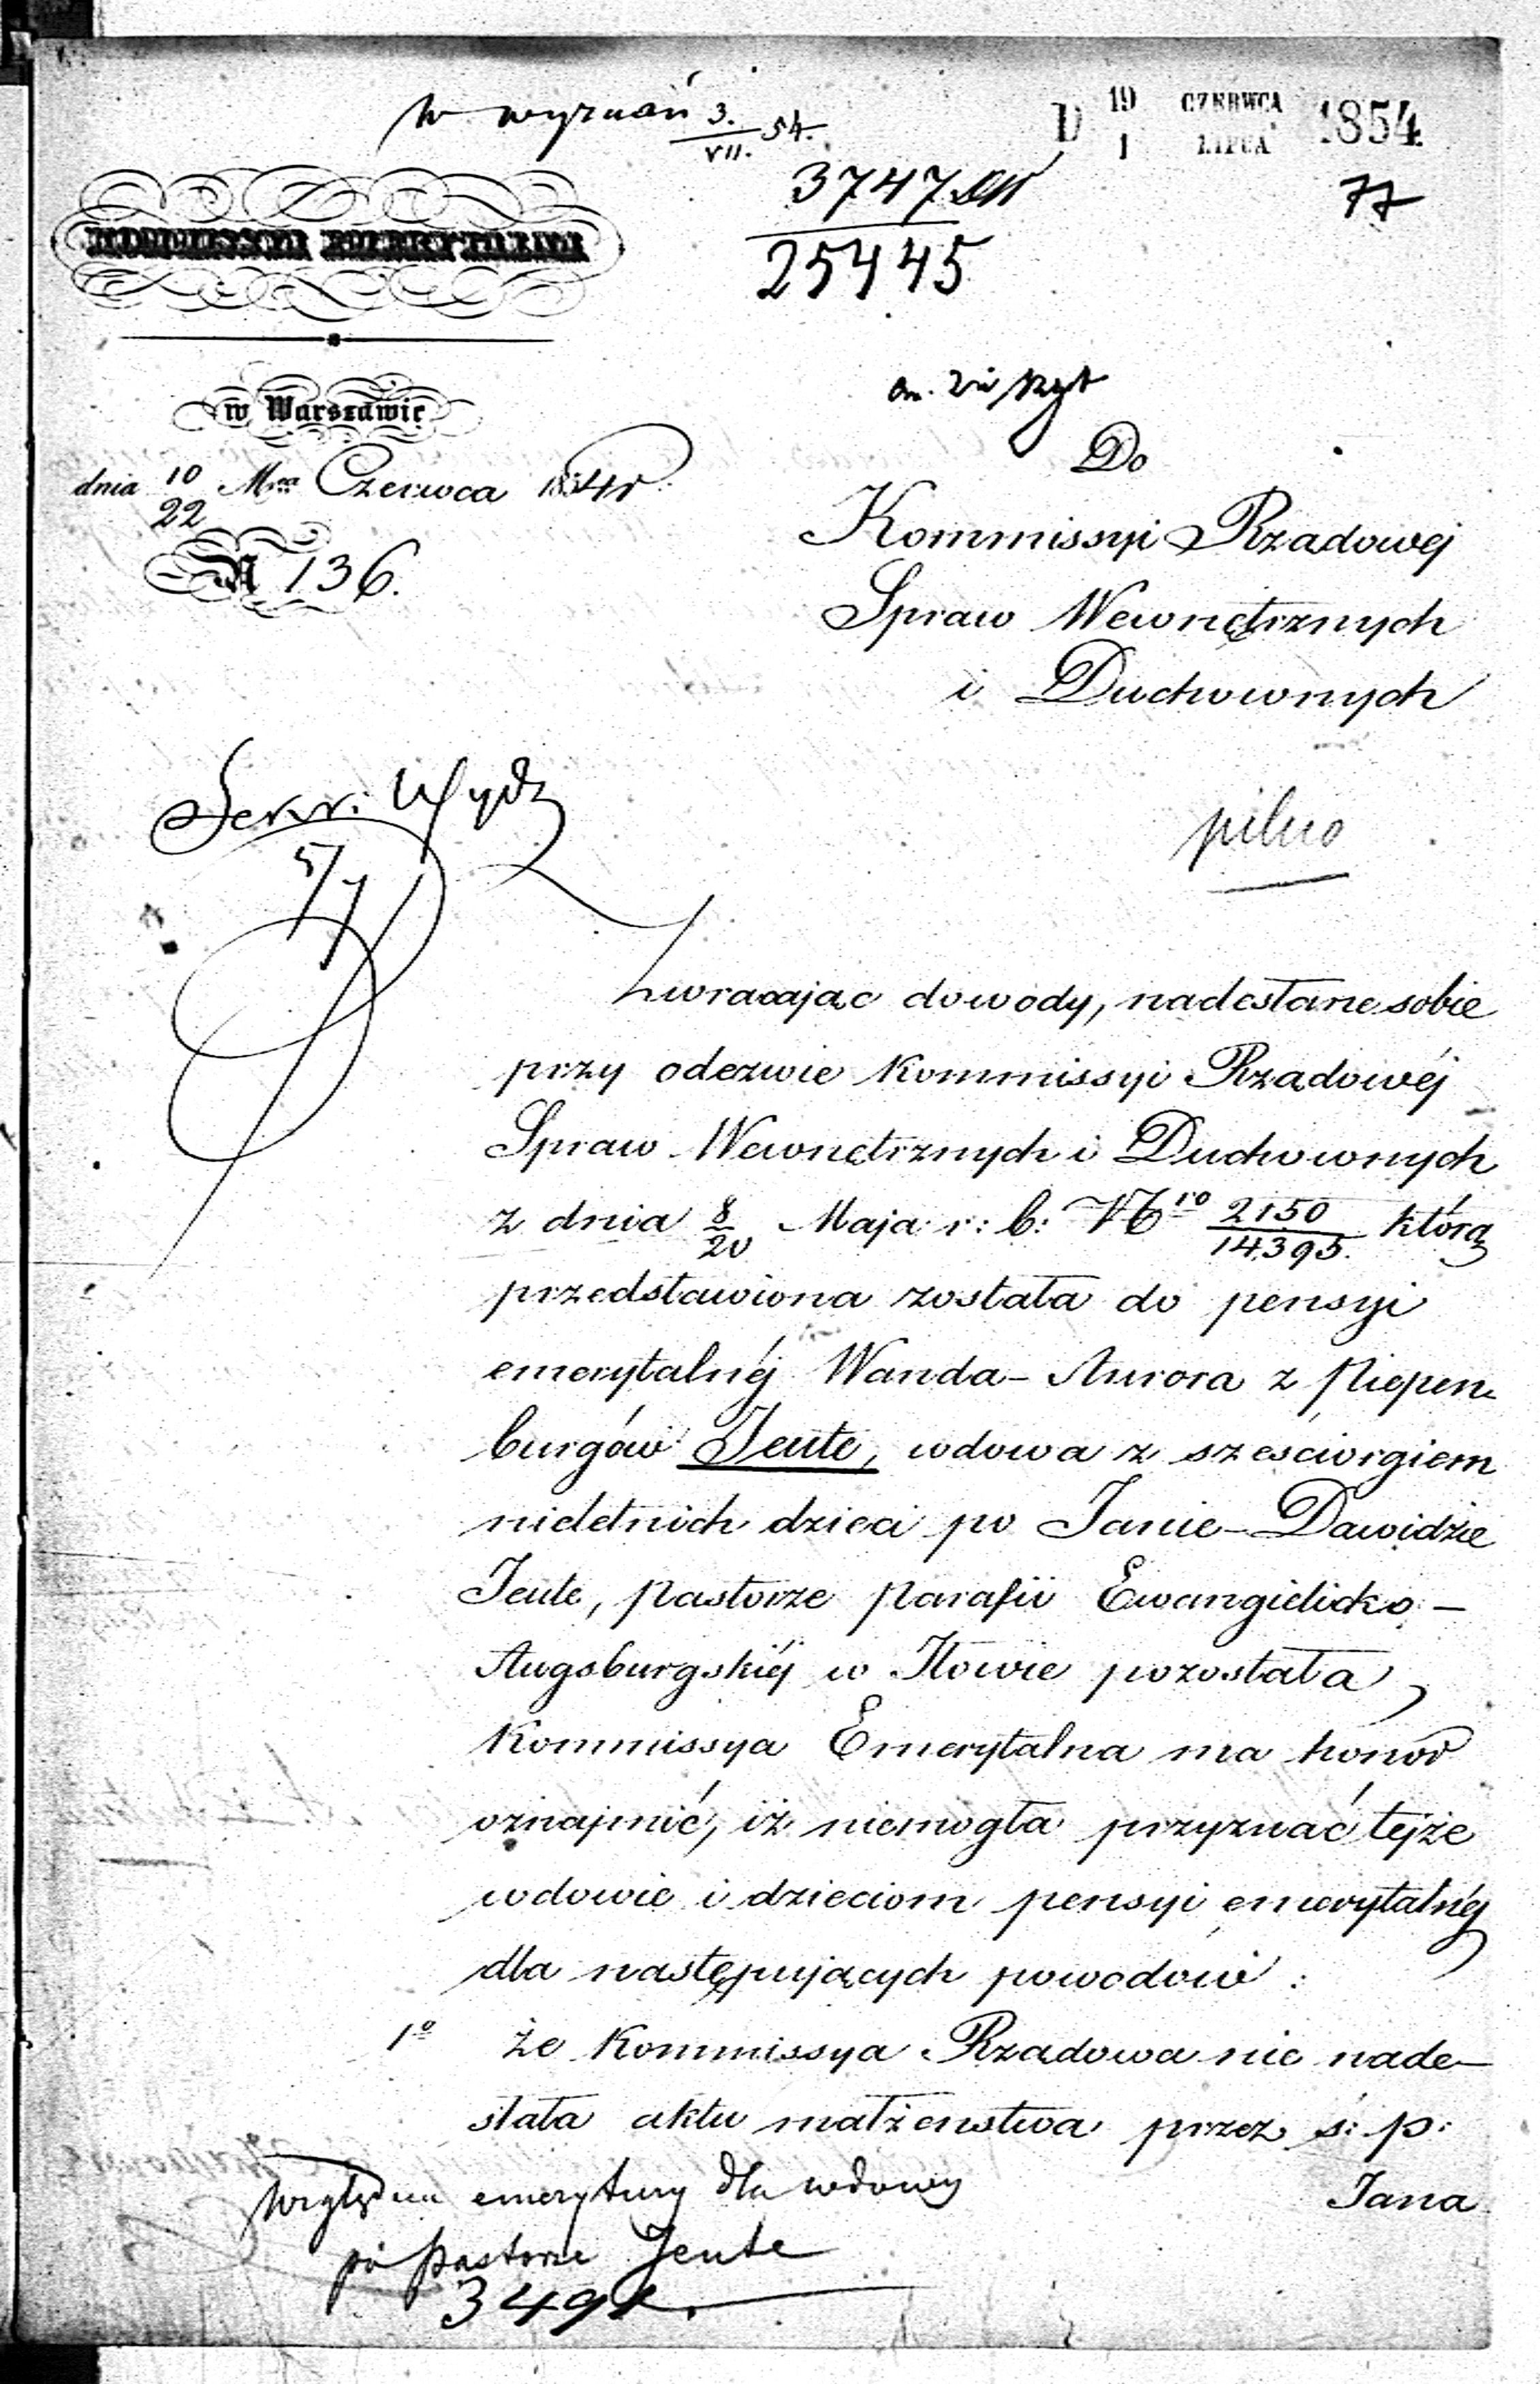 w wyznań 3./VII. 54.
D 19/1 CZERWCA/LIPCA 1854
3747
25445
77
KOMMISSYA EMERYTALNA
w Warszawie
dnia 10/22 Mca Czerwca 1854 r
N 136.
Do
Kommissyi Rządowéj
Spraw Wewnętrznych
i Duchownych
Sekr: Wydz
5/7
pilno
Zwracając dowody, nadesłane sobie
przy odezwie Kommissyi Rządowéj
Spraw Wewnętrznych i Duchownych
z dnia 8/20 Maja r: b: Nro 2150/14395. którą
przedstawiona została do pensyi
emerytalnéj Wanda-Aurora z Piepen
burgów Jeute, wdowa z sześciorgiem
nieletnich dzieci po Janie-Dawidzie
Jeute, Pastorze Parafii Ewangielicko-
Augsburgskiéj w Iłowie pozostała,
Kommissya Emerytalna ma honor
oznajmić, iż niemogła przyznać tejże
wdowie i dzieciom pensyi emerytalnéj
dla następujących powodów:
1o że Kommissya Rządowa nie nade-
słała aktu małżeństwa przez ś: p:
Jana
Względem emerytury dla wdowy
po Pastorze Jeute